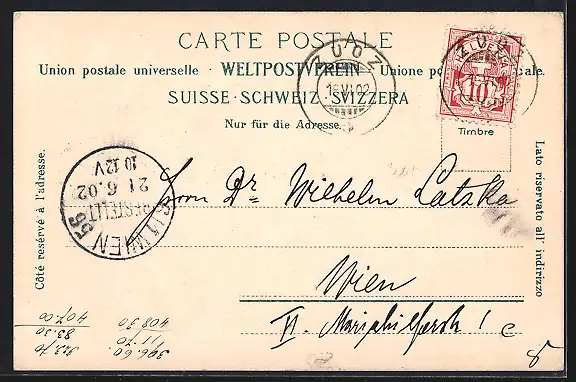 CARTE POSTALE
Union postale universelle · WELTPOSTVEREIN · Unione postale
SUISSE · SCHWEIZ · SVIZZERA
Nur für die Adresse.
ZUOZ
16 VI 02
ZUOZ
HELVETIA
10
Timbre
Côté réservé à l'adresse.
Lato riservato all' indirizzo
6/1 WIEN 56
BESTELLT
21.6.02
10.12V
Herrn Dr Wilhelm Latzka
Wien
VI. Mariahilferstr 1 c
408 30
407.00
11.70
83.30
396.60
323.70